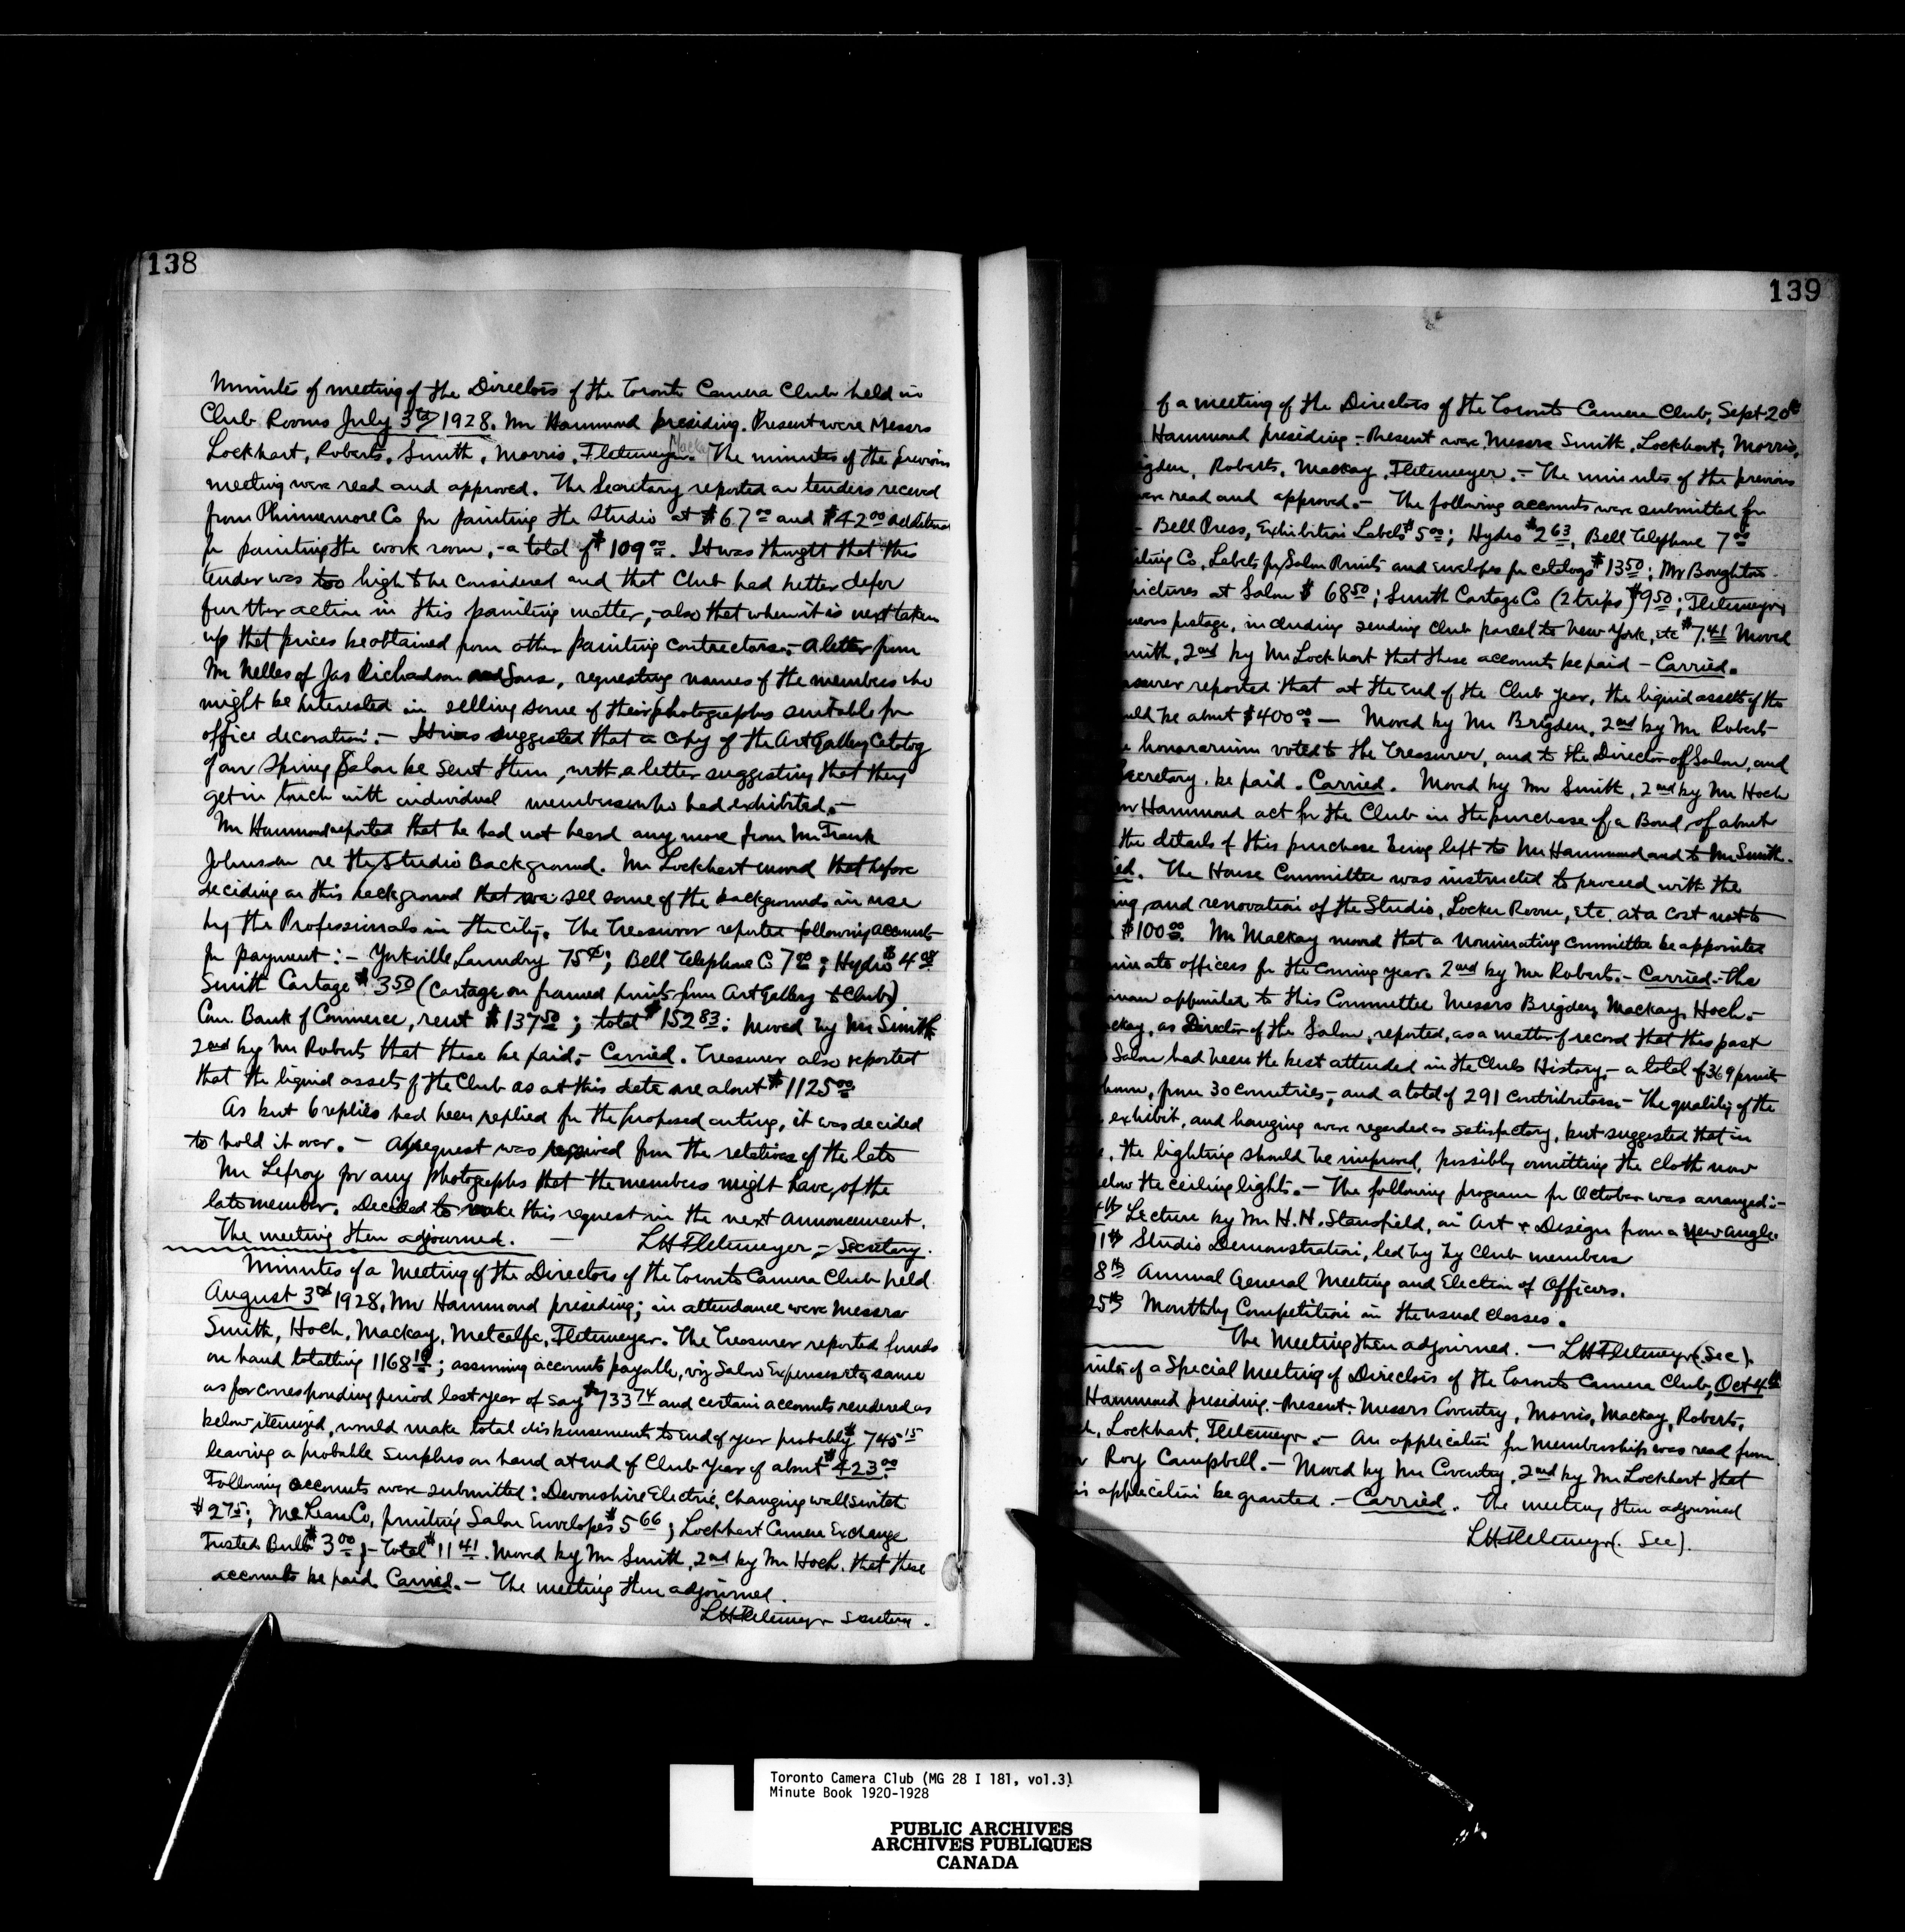 138
Minutes of meeting of the Directors of the Toronto Camera Club held in
Club Rooms July 3rd 1928. Mr Hammond presiding. Present were Messrs
Lockhart, Roberts, Smith, Morris, Fletemeyer. Mackay The minutes of the previous
meeting were read and approved. The Secretary reported on tenders received
from Phinnemore Co for painting the studio at $67.00 and $42.00 additional
for painting the work room, - a total of $109.00. It was thought that this
tender was too high to be considered and that Club had better defer
further action in this painting matter, - also that when it is next taken
up that prices be obtained from other painting contractors. - A letter from
Mr Nelles of Jas Richardson and Sons, requesting names of the members who
might be interested in selling some of their photographs suitable for
office decoration. - It was suggested that a copy of the Art Gallery Catalog
of our Spring Salon be sent them, with a letter suggesting that they
get in touch with individual members who had exhibited. -
Mr Hammond reported that he had not heard any more from Mr Frank
Johnson re the Studio Background. Mr Lockhart moved that before
deciding on this background that we see some of the backgrounds in use
by the Professionals in the city. The Treasurer reported following accounts
for payment: - Yorkville Laundry 75¢; Bell Telephone Co 7.00; Hydro $4.08
Smith Cartage $3.50 (Cartage on framed prints from Art Gallery to Club)
Can. Bank of Commerce, rent $137.50; total $152.83: Moved by Mr Smith
2nd by Mr Roberts that these be paid. - Carried. Treasurer also reported
that the liquid assets of the Club as at this date are about $1125.00
As but 6 replies had been replied for the proposed outing, it was decided
to hold it over. - A request was received from the relatives of the late
Mr Lefroy for any photographs that the members might have, of the
late member. Decided to make this request in the next announcement.
The meeting then adjourned. - LH Fletemeyer, - Secretary.
Minutes of a Meeting of the Directors of the Toronto Camera Club held
August 3rd 1928, Mr Hammond presiding; in attendance were Messrs
Smith, Hoch, Mackay, Metcalfe, Fletemeyer. The Treasurer reported funds
on hand totalling 1168.10; assuming accounts payable, viz Salon Expenses etc, same
as for corresponding period last year of say $733.74 and certain accounts rendered as
below itemized, would make total disbursements to end of year probably $745.15
leaving a probable surplus on hand at end of Club Year of about $423.00
Following accounts were submitted: Devonshire Electric, changing wall switch
$2.75; McLean Co, printing Salon Envelopes $5.66; Lockhart Camera Exchange
Frosted Bulb $3.00; - Total $11.41. Moved by Mr Smith, 2nd by Mr Hoch, that these
accounts be paid. Carried. - The meeting then adjourned.
LH Fletemeyer Secretary.
139
of a meeting of the Directors of the Toronto Camera Club, Sept 20th
Hammond presiding - Present were Messrs Smith, Lockhart, Morris,
igden, Roberts, Mackay, Fletemeyer. - The minutes of the previous
were read and approved. - The following accounts were submitted for
- Bell Press, Exhibition Labels $5.00; Hydro $2.63, Bell Telephone 7.00
ting Co, Labels for Salon Prints and Envelopes for catalogs $13.50; Mr Boughton
pictures at Salon $68.50; Smith Cartage Co (2 trips) $9.50; Fletemeyer,
neous postage, including sending Club parcel to New York, etc $7.41 Moved
mith, 2nd by Mr Lockhart that these accounts be paid - Carried.
asurer reported that at the end of the Club year, the liquid assets of the
uld be about $400.00 - Moved by Mr Brigden, 2nd by Mr Roberts
e honorarium voted to the Treasurer, and to the Director of Salon, and
Secretary, be paid. Carried. Moved by Mr Smith, 2nd by Mr Hoch
Mr Hammond act for the Club in the purchase of a Bond, of about
the details of this purchase being left to Mr Hammond and to Mr Smith.
ied. The House Committee was instructed to proceed with the
ing, and renovation of the Studio, Locker Room, etc. at a cost not to
$100.00. Mr Mackay moved that a nominating committee be appointed
minate officers for the coming year. 2nd by Mr Roberts. - Carried. - The
irman appointed to this Committee Messrs Brigden, Mackay, Hoch. -
ckay, as Director of the Salon, reported, as a matter of record that this past
Salon had been the best attended in the Clubs History, - a total of 369 prints
hown, from 30 countries, - and a total of 291 contributors. - The quality of the
exhibit, and hanging were regarded as satisfactory, but suggested that in
e, the lighting should be improved, possibly omitting the cloth now
elow the ceiling lights. - The following program for October was arranged: -
4th Lecture by Mr H.N. Stansfield, on Art & Design from a New Angle.
11th Studio Demonstration, led by by Club members
8th Annual General Meeting and Election of Officers.
25th Monthly Competition in the usual classes.
The Meeting then adjourned. - LH Fletemeyer (Sec).
inutes of a Special Meeting of Directors of the Toronto Camera Club, Oct 4th
Hammond presiding. - Present. Messrs Coventry, Morris, Mackay, Roberts,
ch, Lockhart, Fletemeyer. - An application for Membership was read from
Mr Roy Campbell. - Moved by Mr Coventry, 2nd by Mr Lockhart that
is application be granted. - Carried. The meeting then adjourned
LH Fletemeyer (Sec).
Toronto Camera Club (MG 28 I 181, vol.3)
Minute Book 1920-1928
PUBLIC ARCHIVES
ARCHIVES PUBLIQUES
CANADA